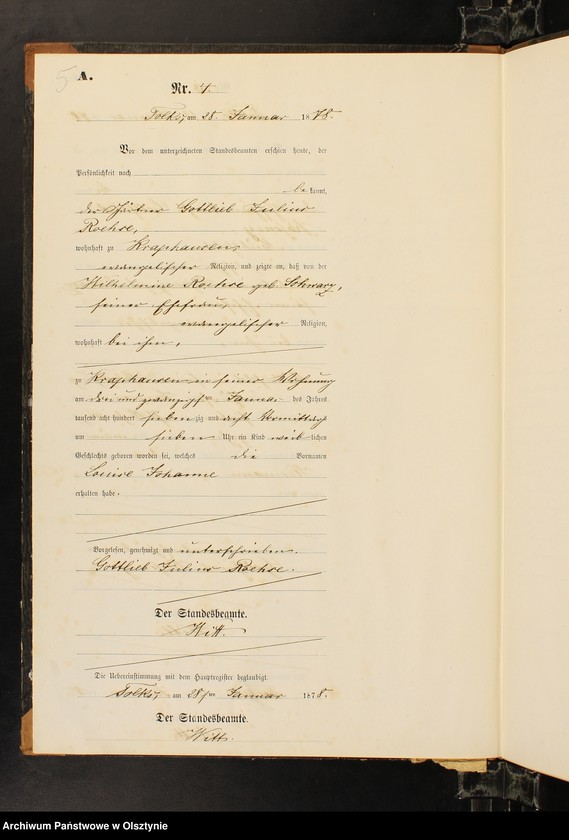 5
A.
Nr. 4.
Tolks, am 28. Januar 1878.
Vor dem unterzeichneten Standesbeamten erschien heute, der
Persönlichkeit nach
bekannt,
der Gärtner Gottlieb Julius
Roehse,
wohnhaft zu Kraphausen,
evangelischer Religion, und zeigte an, daß von der
Wilhelmine Roehse geb. Schwarz,
seiner Ehefrau,
evangelischer Religion,
wohnhaft bei ihm,
zu Kraphausen in seiner Wohnung
am drei und zwanzigsten Januar des Jahres
tausend acht hundert siebenzig und acht Vormittags
um sieben Uhr ein Kind weiblichen
Geschlechts geboren worden sei, welches die Vornamen
Louise Johanne
erhalten habe.
Vorgelesen, genehmigt und unterschrieben.
Gottlieb Julius Roehse.
Der Standesbeamte.
Witt.
Die Uebereinstimmung mit dem Hauptregister beglaubigt.
Tolks, am 28ten Januar 1878.
Der Standesbeamte.
Witt.
Archiwum Państwowe w Olsztynie